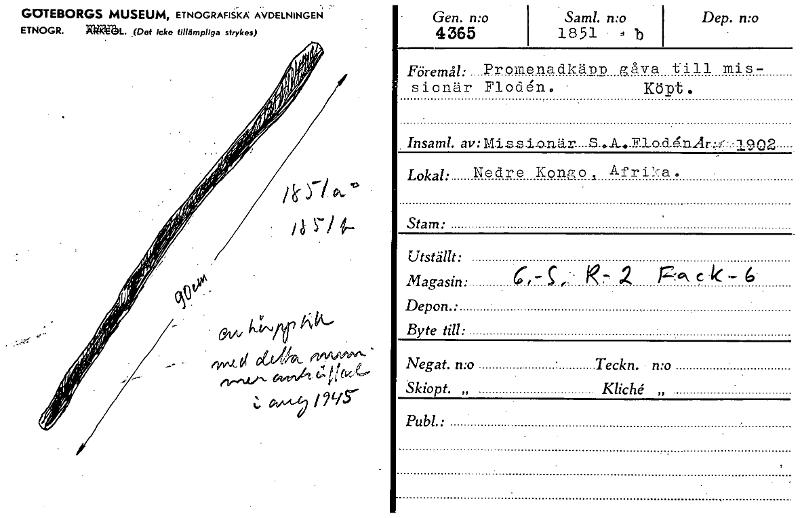 GÖTEBORGS MUSEUM, ETNOGRAFISKA AVDELNINGEN
ETNOGR. ARKEOL. (Det icke tillämpliga strykes)
1851a
1851b
90cm
en käpp till
med detta num-
mer anträffad
i aug 1945
Gen. n:o Saml. n:o Dep. n:o
4365 1851 - b
Föremål: Promenadkäpp gåva till mis-
sionär Flodén. Köpt.
Insaml. av: Missionär S.A.Flodén År: 1902
Lokal: Nedre Kongo, Afrika.
Stam:
Utställt:
Magasin: G.-S. R-2 Fack-6
Depon.:
Byte till:
Negat. n:o Teckn. n:o
Skiopt. „ Kliché „
Publ.: